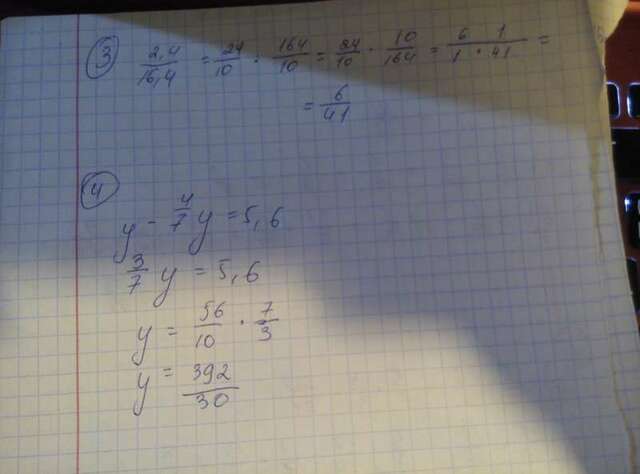 ③ 2,4/16,4 = 24/10 · 164/10 = 24/10 · 10/164 = 6 · 1/1 · 41 =
= 6/41
④
y - 4/7 y = 5,6
3/7 y = 5,6
y = 56/10 · 7/3
y = 392/30